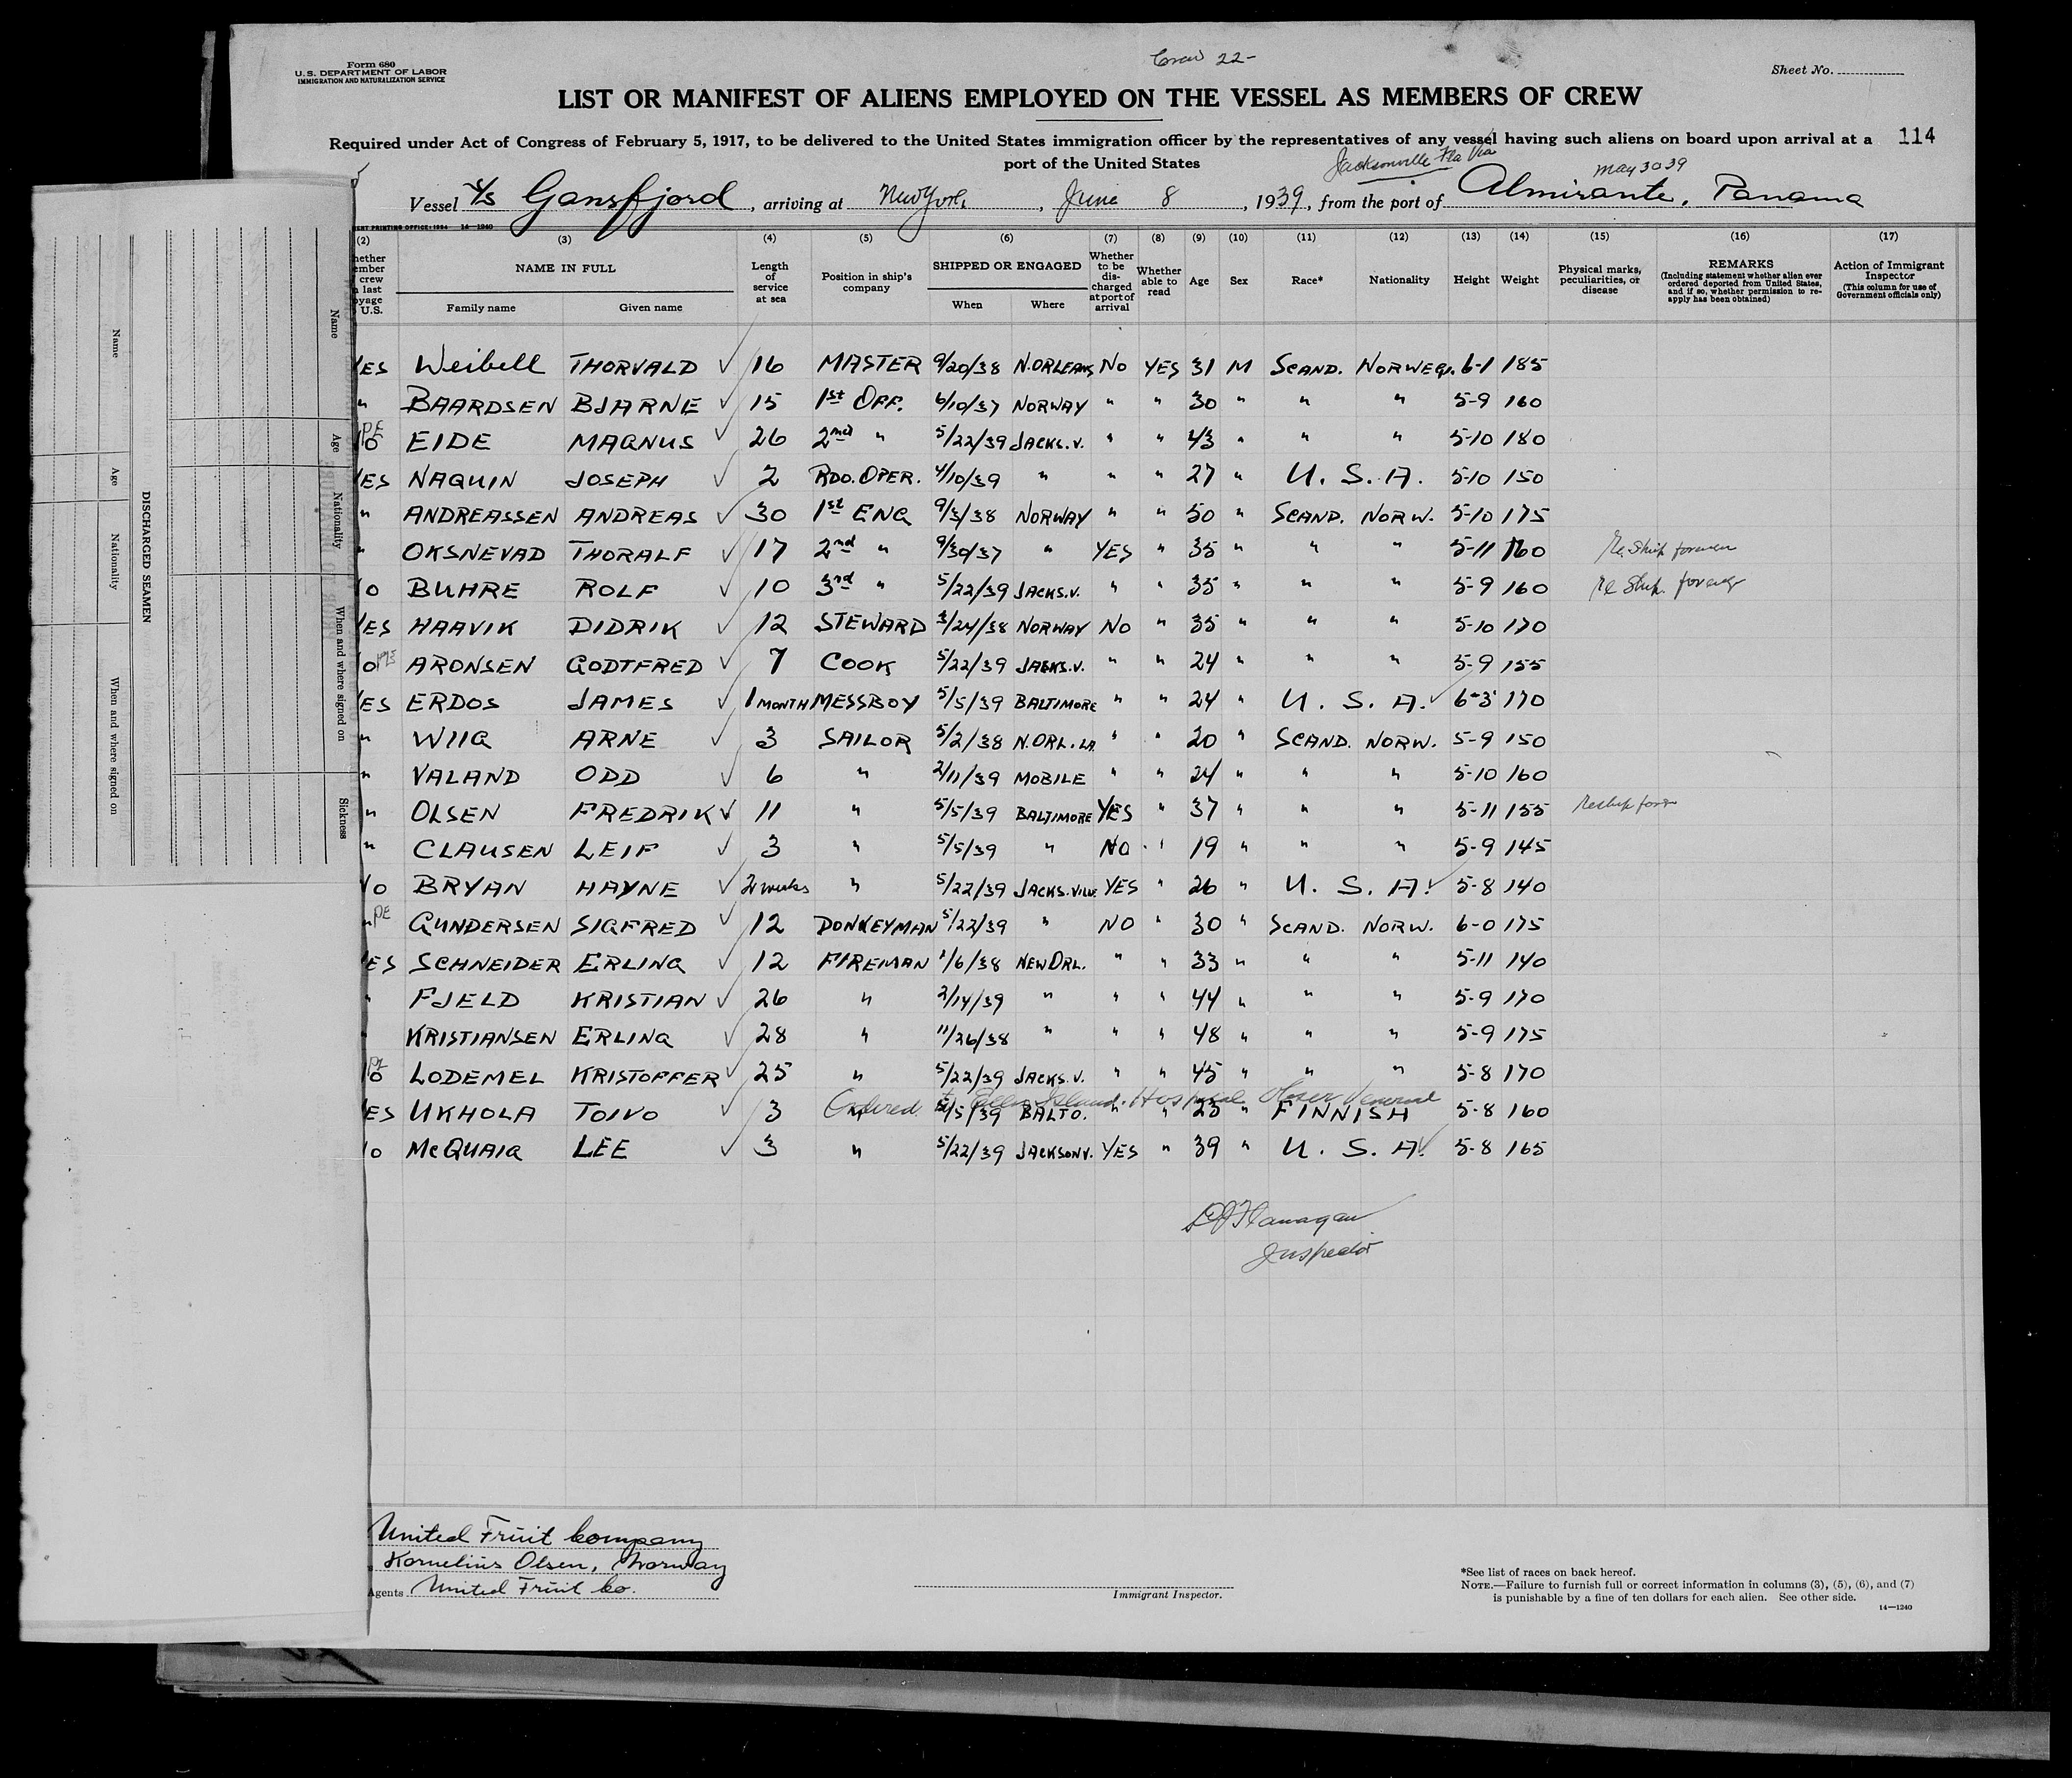 Form 680
U. S. DEPARTMENT OF LABOR
IMMIGRATION AND NATURALIZATION SERVICE
Crew 22-
Sheet No.
LIST OR MANIFEST OF ALIENS EMPLOYED ON THE VESSEL AS MEMBERS OF CREW
Required under Act of Congress of February 5, 1917, to be delivered to the United States immigration officer by the representatives of any vessel having such aliens on board upon arrival at a
port of the United States
114
Jacksonville Fla Via
May 30 39
Vessel S/S Gansfjord, arriving at New York, June 8, 1939, from the port of Almirante, Panama
(2) (3) (4) (5) (6) (7) (8) (9) (10) (11) (12) (13) (14) (15) (16) (17)
NAME IN FULL
Family name Given name
Length of service at sea
Position in ship's company
SHIPPED OR ENGAGED
When Where
Whether to be discharged at port of arrival
Whether able to read
Age Sex Race* Nationality Height Weight
Physical marks, peculiarities, or disease
REMARKS
(Including statement whether alien ever ordered deported from United States, and if so, whether permission to reapply has been obtained)
Action of Immigrant Inspector
(This column for use of Government officials only)
YES Weibell THORVALD ✓ 16 MASTER 9/20/38 N.ORLEANS NO YES 31 M SCAND. NORWEG. 6-1 185
" BAARDSEN BJARNE ✓ 15 1st OFF. 6/10/37 NORWAY " " 30 " " " 5-9 160
EIDE MAGNUS ✓ 26 2nd " 5/22/39 JACKS.V. " " 43 " " " 5-10 180
YES NAQUIN JOSEPH ✓ 2 RDO. OPER. 4/10/39 " " " 27 " U. S. A. 5-10 150
" ANDREASSEN ANDREAS ✓ 30 1st ENG 9/3/38 NORWAY " " 50 " SCAND. NORW. 5-10 175
" OKSNEVAD THORALF ✓ 17 2nd " 9/30/37 " YES " 35 " " " 5-11 160 Re. Ship foreign
NO BUHRE ROLF ✓ 10 3rd " 5/22/39 JACKS.V. " " 35 " " " 5-9 160 Re Ship. foreign
YES HAAVIK DIDRIK ✓ 12 STEWARD 3/24/38 NORWAY NO " 35 " " " 5-10 170
NO ARONSEN GODTFRED ✓ 7 COOK 5/22/39 JACKS.V. " " 24 " " " 5-9 155
YES ERDOS JAMES ✓ 1 MONTH MESSBOY 5/5/39 BALTIMORE " " 24 " U. S. A. ✓ 6-3 170
" WIIG ARNE ✓ 3 SAILOR 5/2/38 N.ORL.LA. " " 20 " SCAND. NORW. 5-9 150
" VALAND ODD ✓ 6 " 2/11/39 MOBILE " " 24 " " " 5-10 160
" OLSEN FREDRIK ✓ 11 " 5/5/39 BALTIMORE YES " 37 " " " 5-11 155 Reship foreign
" CLAUSEN LEIF ✓ 3 " 5/5/39 " NO " 19 " " " 5-9 145
NO BRYAN HAYNE ✓ 2 weeks " 5/22/39 JACKS.VILLE YES " 26 " U. S. A. ✓ 5-8 140
" PE GUNDERSEN SIGFRED ✓ 12 DONKEYMAN 5/22/39 " NO " 30 " SCAND. NORW. 6-0 175
YES SCHNEIDER ERLING ✓ 12 FIREMAN 1/6/38 NEW ORL. " " 33 " " " 5-11 140
" FJELD KRISTIAN ✓ 26 " 2/14/39 " " " 44 " " " 5-9 170
" KRISTIANSEN ERLING ✓ 28 " 11/26/38 " " " 48 " " " 5-9 175
NO LODEMEL KRISTOFFER ✓ 25 " 5/22/39 JACKS.V. " " 45 " " " 5-8 170
Ordered to Ellis Island Hospital Venereal
YES UKHOLA TOIVO ✓ 3 " 5/5/39 BALTO. " " 23 " FINNISH 5-8 160
NO McQUAIG LEE ✓ 3 " 5/22/39 JACKSONV. YES " 39 " U. S. A. ✓ 5-8 165
Flanagan
Inspector
United Fruit Company
Kornelius Olsen, Norway
Agents United Fruit Co.
Immigrant Inspector.
*See list of races on back hereof.
NOTE.—Failure to furnish full or correct information in columns (3), (5), (6), and (7)
is punishable by a fine of ten dollars for each alien. See other side.
14—1240
DISCHARGED SEAMEN
Name Age Nationality When and where signed on
Name Age Nationality When and where signed on Sickness